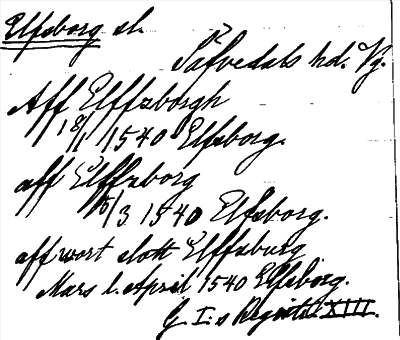 Elfsborg sl.
Säfvedals hd. Vg.
Aff Elffzborgh
18/1 1540 Elfsborg.
aff Elffzborg
6/3 1540 Elfsborg.
aff wort slott Elffsburg
Mars l. April 1540 Elfsborg.
G. I:s Registr. XIII.